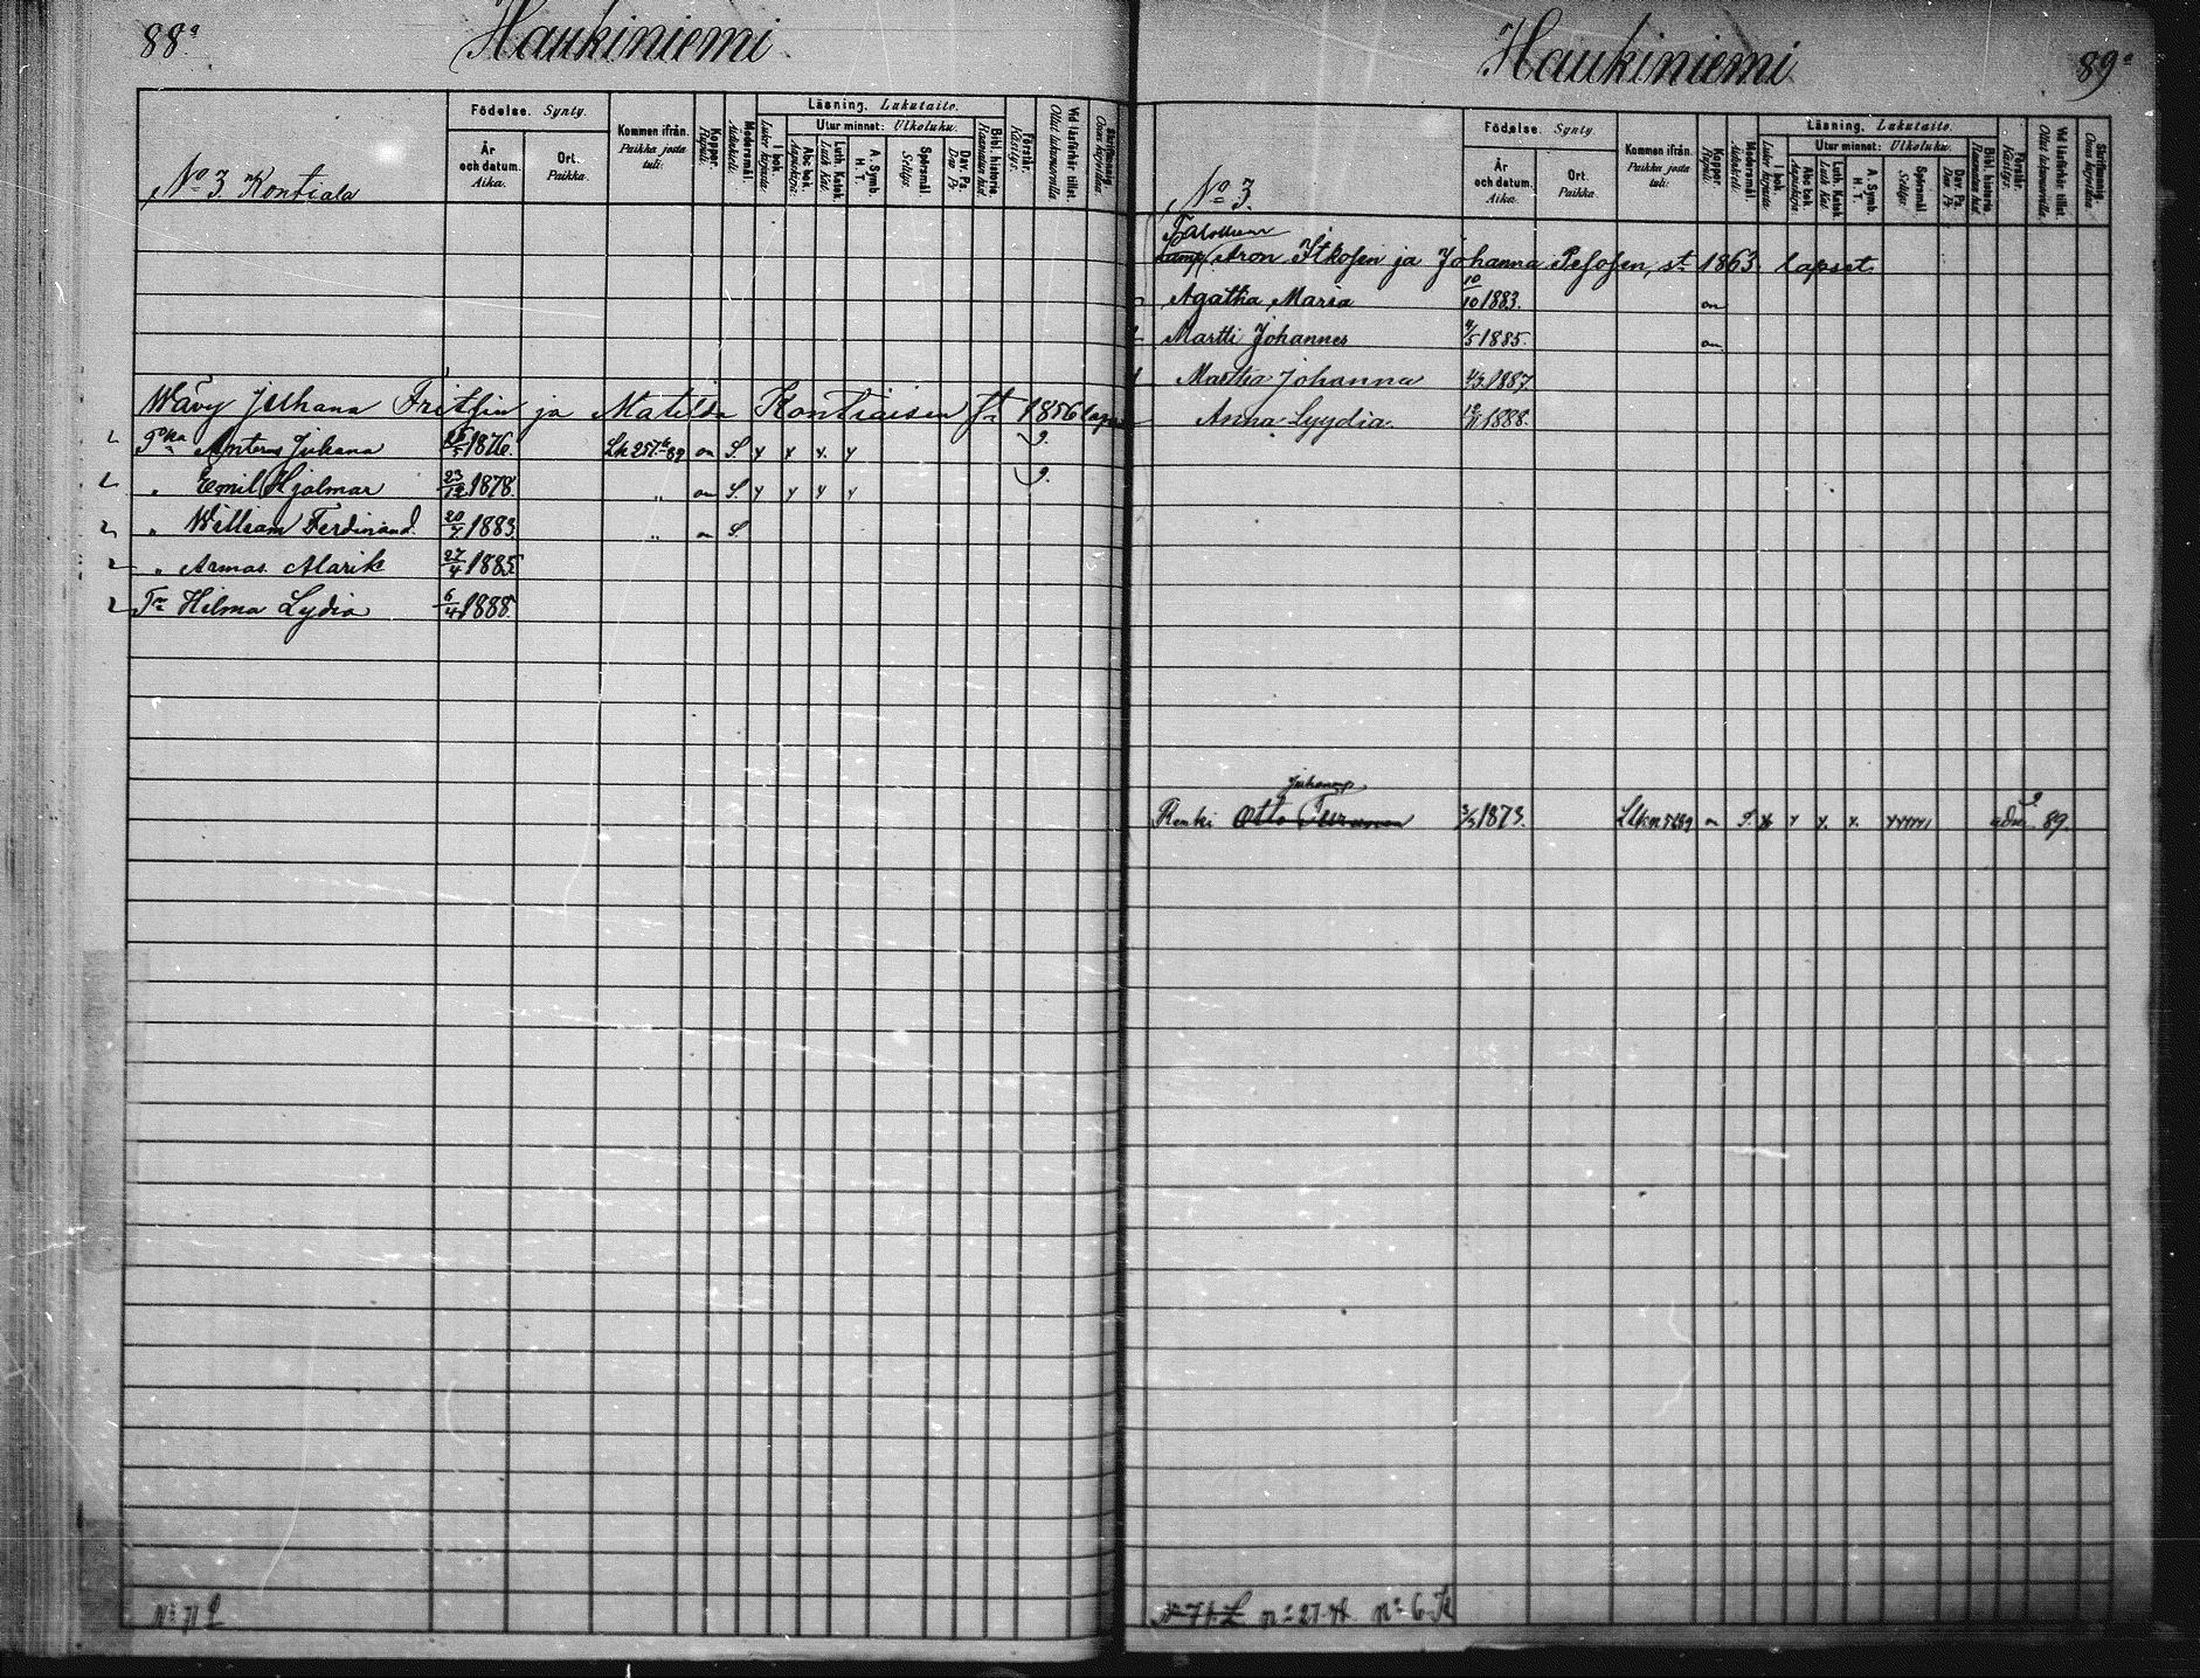 88a
Haukiniemi
No 3 Kontiala
Födelse. Synty.
År och datum. Aika.
Ort. Paikka.
Kommen ifrån. Paikka josta tuli:
Koppor. Rupuli.
Modersmål. Äidinkieli.
Läsning. Lukutaito.
I bok. Luku kirjasta
Utur minnet: Ulkoluku.
Abc bok. Aapiskirja
Luth. Katek. Luth. Kat.
A. Symb. H. T.
Spörsmål. Selitys.
Dav. Ps. Dav. Ps.
Bibl. historie. Raamatun hist.
Förstår. Käsitys.
Vid läsförhör tillst. Ollut lukumuroilla
Skriftmässig. Osaa kirjoittaa
Wävy Juhana Fritsin ja Matilda Kontiaisen st. 1856
Poika Anterus Juhana 1876. Lk 257 89 on S. y y y. y
" Emil Hjalmar 23/12 1878. " on S. y y y y
" William Ferdinand. 20/7 1883. " on S.
" Armas Marik 27/4 1885
Tr Hilma Lydia 6/4 1888.
No 71 L
Haukiniemi
89a
No 3.
Födelse. Synty.
År och datum. Aika.
Ort. Paikka.
Kommen ifrån. Paikka josta tuli:
Koppor. Rupuli.
Modersmål. Äidinkieli.
Läsning. Lukutaito.
I bok. Luku kirjasta
Utur minnet: Ulkoluku.
Abc bok. Aapiskirja
Luth. Katek. Luth. Kat.
A. Symb. H. T.
Spörsmål. Selitys.
Dav. Ps. Dav. Ps.
Bibl. historie. Raamatun hist.
Förstår. Käsitys.
Vid läsförhör tillst. Ollut lukumuroilla
Skriftmässig. Osaa kirjoittaa
Aron Itkosen ja Johanna Pesosen, st. 1863. lapset.
Agatha Maria 10/10 1883. on
Martti Johannes 4/5 1885. on
Martta Johanna 1887
Anna Lyydia. 1888.
Juhana
Renki Otto Turunen 3/3 1873. on S. y y y. y. 89.
No 71 L no 27 no 6